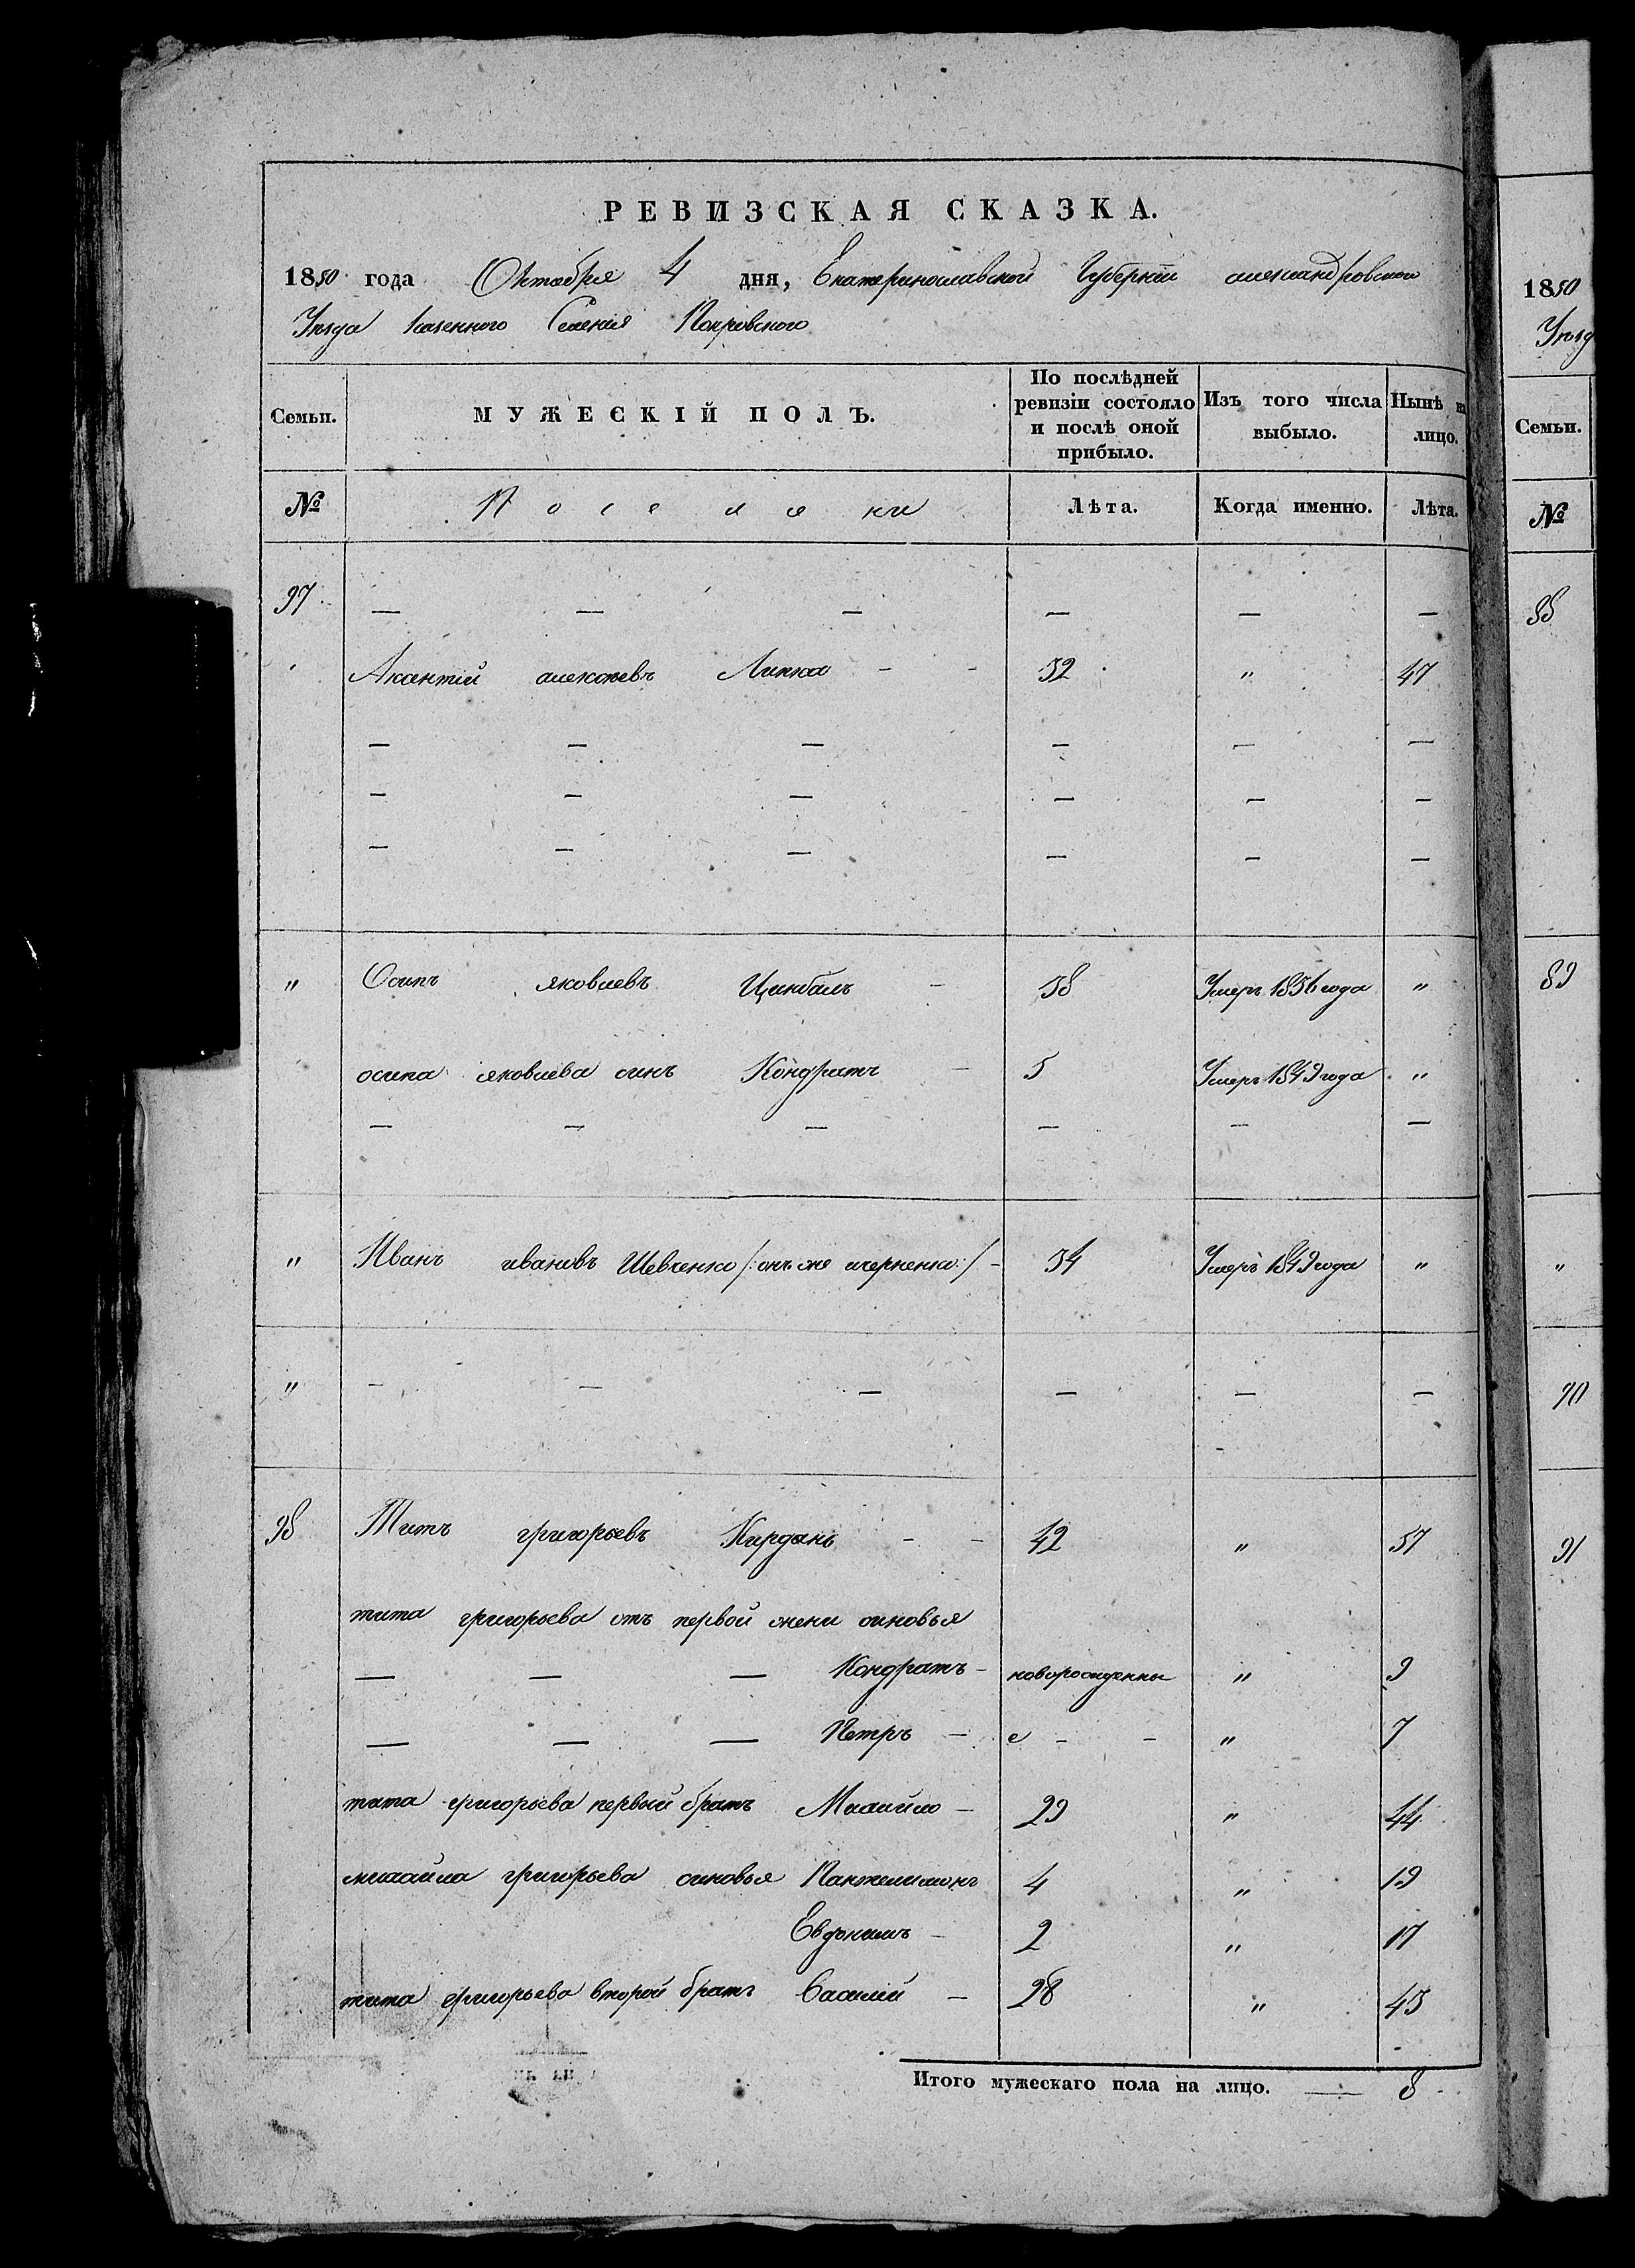 РЕВИЗСКАЯ СКАЗКА.
1850 года Октября 4 дня, Екатеринославской Губерніи александровского
Уезда казенного Селенія Покровского
Семьи. МУЖЕСКІЙ ПОЛЪ. По послѣдней ревизіи состояло и послѣ оной прибыло. Изъ того числа выбыло. Нынѣ на лицо.
№ Поселяни Лѣта. Когда именно. Лѣта.
97 — — — — — —
Аксентій алексѣевъ Липка - - 32 " 47
— — — — — —
— — — — — —
— — — — — —
" Осипъ яковлевъ Цимбалъ - 38 Умеръ 1836 года "
осипа яковлева синъ Кондратъ - 5 Умеръ 1849 года "
— — — — — —
" Иванъ ивановъ Шевченко /:онъ же :/ - 34 Умеръ 1849 года "
" — — — — — —
98 Титъ григорьевъ Кирдань - - 42 " 57
тита григорьева отъ первой жени синовья
— — — Кондратъ - новорожденны " 9
— — — Петръ - е - - " 7
тита григорьева первый братъ Михайло - 29 " 44
михайла григорьева синовья Пантелимонъ 4 " 19
Евдокимъ - 2 " 17
тита григорьева второй братъ Василий - 28 " 43
Итого мужескаго пола на лицо. — 8
1850
Уезд
Семьи.
№
88
89
"
90
91